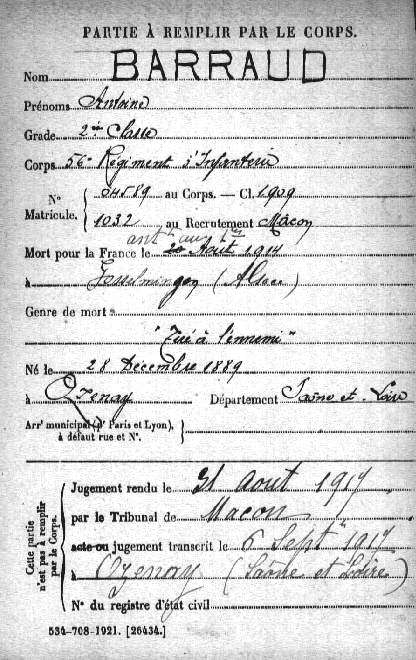 PARTIE À REMPLIR PAR LE CORPS.
Nom BARRAUD
Prénoms Antoine
Grade 2ème Classe
Corps 56e Régiment d'Infanterie
N° Matricule. { 04589 au Corps. — Cl. 1909
1032 au Recrutement Mâcon
Mort pour la France le 20 Août 1914
à (Alsace)
Genre de mort
"Tué à l'ennemi"
Né le 28 Décembre 1889
à Ozenay Département Saône et Loire
Arrt municipal (pr Paris et Lyon), à défaut rue et N°. }
Cette partie n'est pas à remplir par le Corps.
Jugement rendu le 31 Août 1917
par le Tribunal de Macon
acte ou jugement transcrit le 6 Septt 1917
à Ozenay (Saône et Loire)
N° du registre d'état civil
534-708-1921. [26434.]